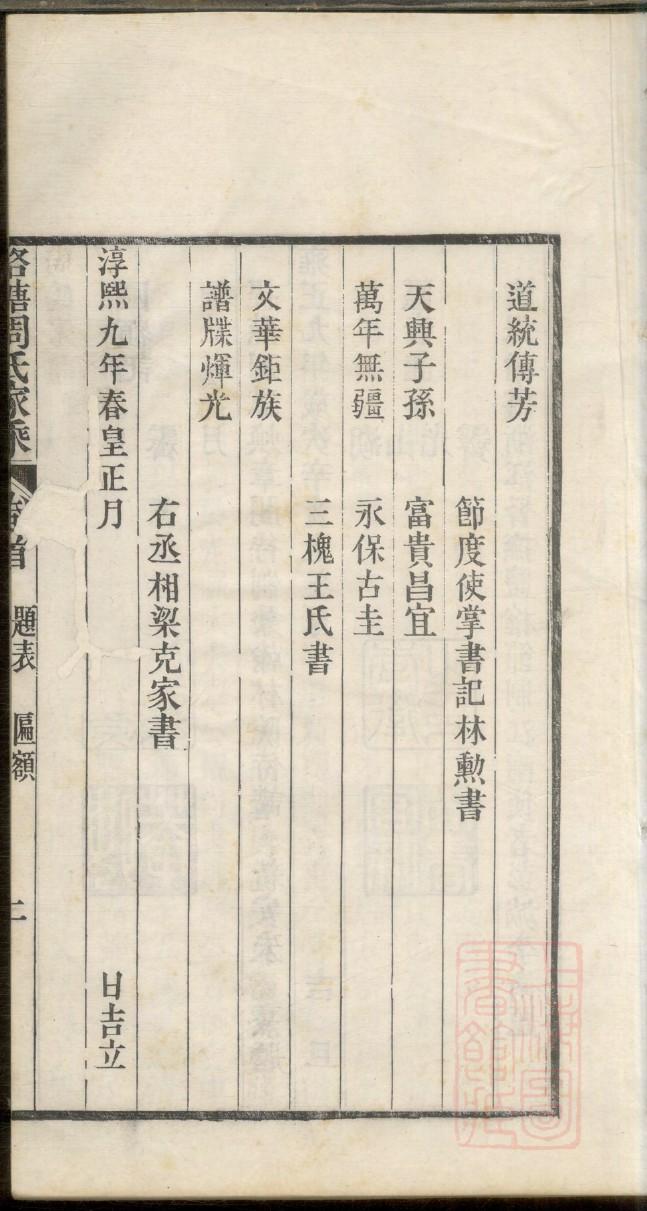 道統傳芳
節度使掌書記林勲書
天興子孫 富貴昌宜
萬年無疆 永保古圭
三槐王氏書
文華鉅族
譜牒煇光
右丞相梁克家書
淳熙九年春皇正月 日吉立
周氏家乘 首 題表 匾額 二
上海圖書館藏